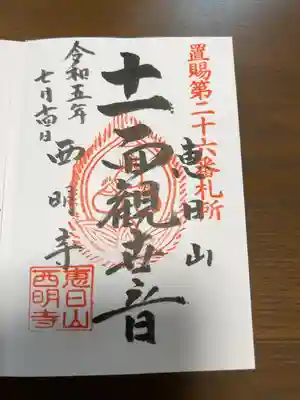 置賜第二十六番札所
恵日山
十一面観世音
令和五年
七月十四日
西明寺
恵日山
西明寺